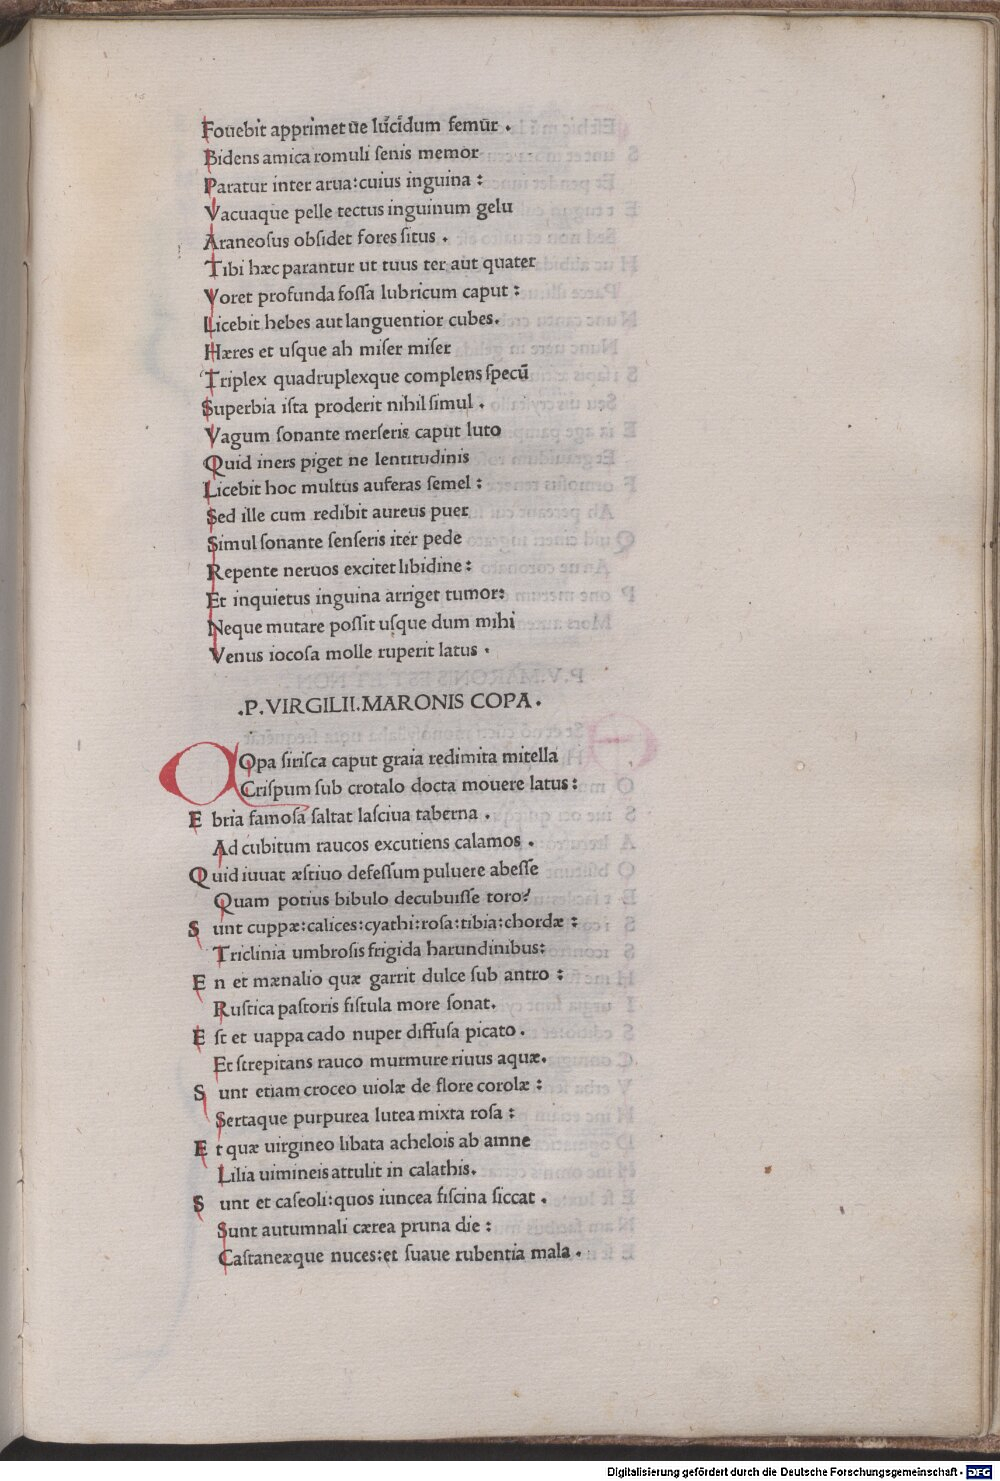 Fouebit apprimet ūe lucidum femur .
Bidens amica romuli senis memor
Paratur inter arua:cuius inguina :
Vacuaque pelle tectus inguinum gelu
Araneosus obsidet fores situs .
Tibi hæc parantur ut tuus ter aut quater
Voret profunda fossa lubricum caput :
Licebit hebes aut languentior cubes.
Hæres et usque ah miser miser
Triplex quadruplexque complens specū
Superbia ista proderit nihil simul .
Vagum sonante merseris caput luto
Quid iners piget ne lentitudinis
Licebit hoc multus auferas semel :
Sed ille cum redibit aureus puer
Simul sonante senseris iter pede
Repente neruos excitet libidine :
Et inquietus inguina arriget tumor:
Neque mutare possit usque dum mihi
Venus iocosa molle ruperit latus .
.P.VIRGILII.MARONIS COPA.
COpa sirisca caput graia redimita mitella
Crispum sub crotalo docta mouere latus :
E bria famosa saltat lasciua taberna .
Ad cubitum raucos excutiens calamos .
Q uid iuuat æstiuo defessum puluere abesse
Quam potius bibulo decubuisse toro?
S unt cuppæ:calices:cyathi:rosa:tibia:chordæ :
Triclinia umbrosis frigida harundinibus:
E n et mænalio quæ garrit dulce sub antro :
Rustica pastoris fistula more sonat.
E st et uappa cado nuper diffusa picato .
Et strepitans rauco murmure riuus aquæ.
S unt etiam croceo uiolæ de flore corolæ :
Sertaque purpurea lutea mixta rosa :
E t quæ uirgineo libata achelois ab amne
Lilia uimineis attulit in calathis.
S unt et caseoli:quos iuncea fiscina siccat .
Sunt autumnali cærea pruna die :
Castaneæque nuces:et suaue rubentia mala .
Digitalisierung gefördert durch die Deutsche Forschungsgemeinschaft - DFG